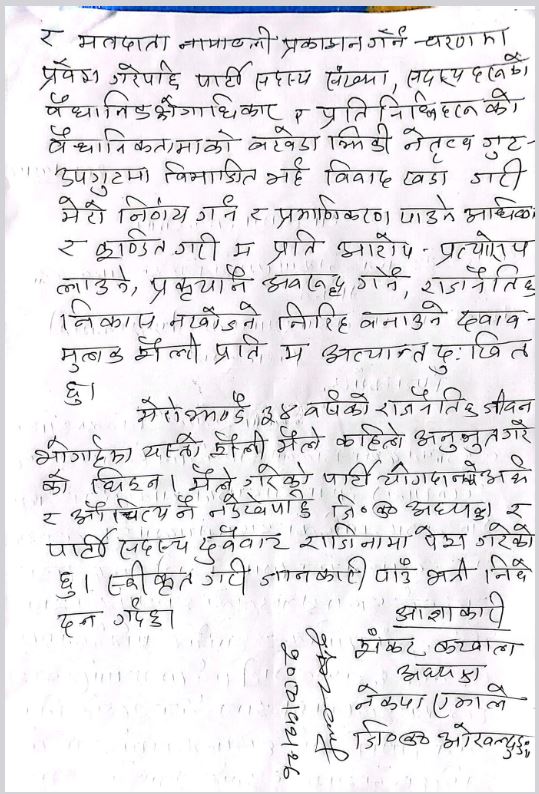 र मतदाता नामावली प्रकासन गर्ने चरणमा
प्रवेश गरेपछि पार्टी सदस्य संख्या, सदस्य हरूको
बैधानिक भोगाधिकार र प्रतिनिधिहरूको
बैधानिकतामाको बखेडा झिकी नेतृत्व गुट-
उपगुटमा विभाजित भई विवाद खडा गरी
मेरो निर्णय गर्न र प्रमाणिकरण पाउने अधिका
र कुण्ठित गरी म प्रति आरोप-प्रत्यारोप
लाउने, प्रकृयानै अवरूद्ध गर्ने, राजनैतिक
निकास नखोज्ने निरिह बनाउने दवाव-
मुलक शैली प्रति म अत्यान्त दुःखित
छु।
मेरो झण्डै ३४ वर्षको राजनैतिक जीवन
भोगाईमा यस्तो शैली मैले कहिल्यै अनुभुत गरे
को थिइन। मैले गरेको पार्टी योगदानको अर्थ
र औचित्य नै नदेखेपछि जि०क० अध्यक्ष र
पार्टी सदस्य दुवैवाट राजिनामा पेश गरेको
छु। स्वीकृत गरी जानकारी पाउँ भनी निवे
दन गर्दछु।
आज्ञाकारी
शंकर
अध्यक्ष
नेकपा एमाले
जि०क० ओखलढुङ्गा